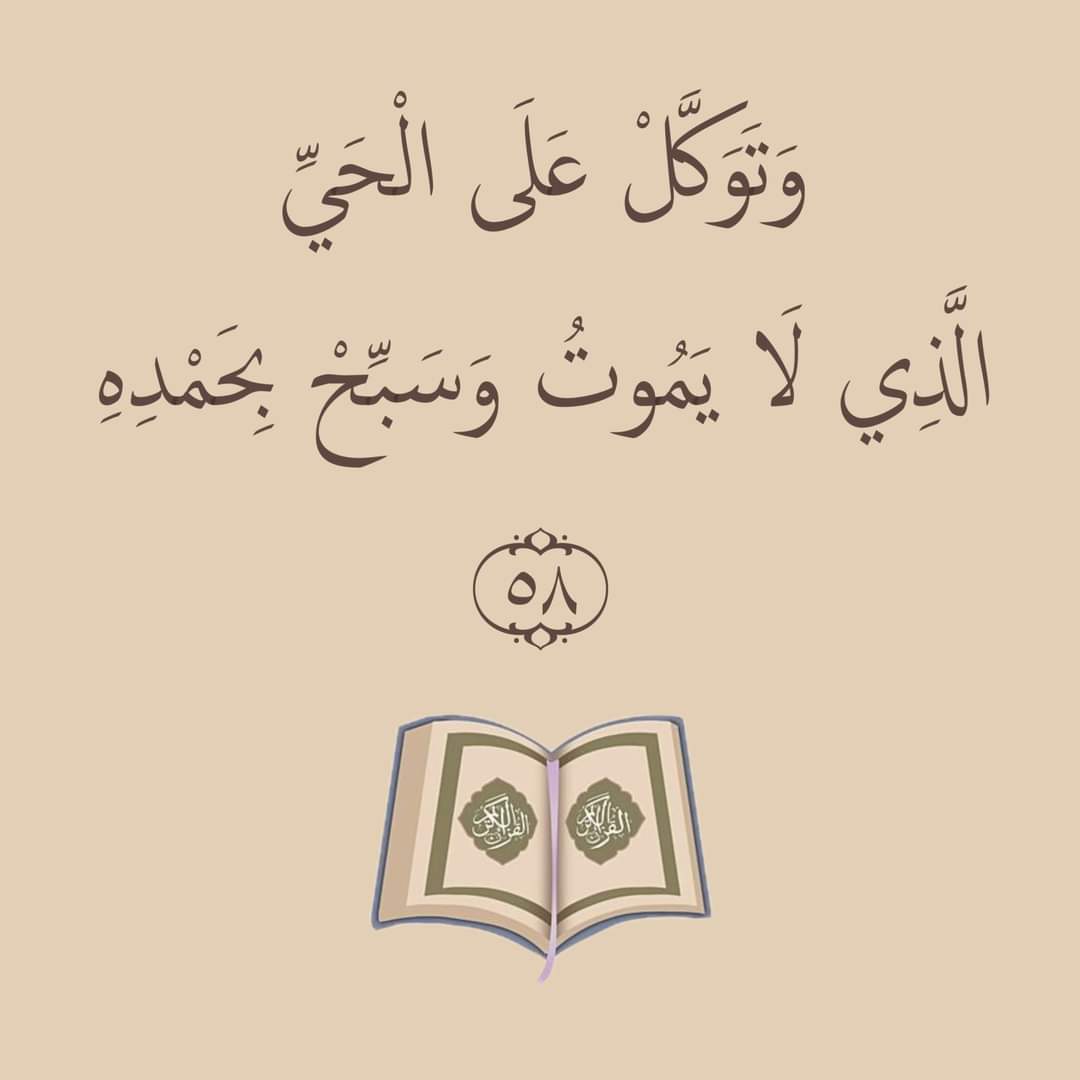 وَتَوَكَّلْ عَلَى الْحَيِّ
الَّذِي لَا يَمُوتُ وَسَبِّحْ بِحَمْدِهِ
٥٨
القرآن الكريم
القرآن الكريم